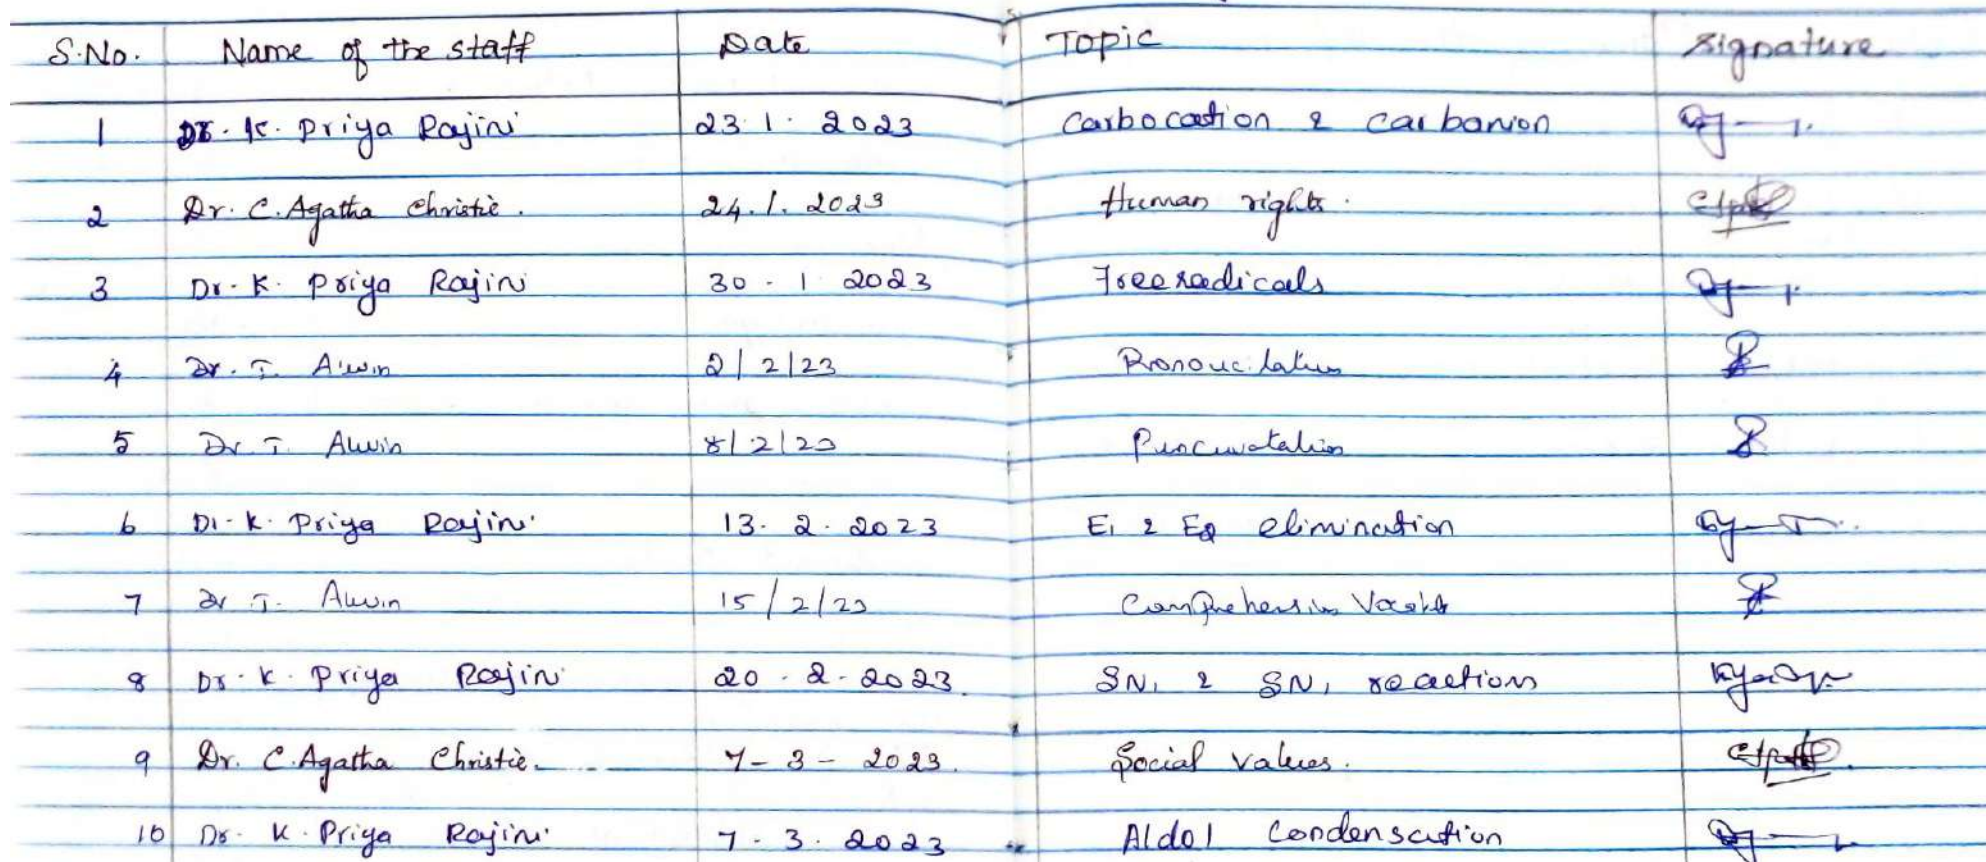 S.No. Name of the staff Date Topic Signature
1 Dr. K. Priya Rajini 23.1.2023 Carbocation & carbanion
2 Dr. C. Agatha Christie. 24.1.2023 Human rights.
3 Dr. K. Priya Rajini 30.1.2023 Free radicals
4 Dr. T. Alwin 2/2/23
5 Dr. T. Alwin 8/2/23
6 Dr. K. Priya Rajini 13.2.2023 E1 & E2 elimination
7 Dr T. Alwin 15/2/23
8 Dr. K. Priya Rajini 20.2.2023 SN1 & SN1 reactions
9 Dr. C. Agatha Christie. 7-3-2023. Social values.
10 Dr. K. Priya Rajini 7.3.2023 Aldol Condensation